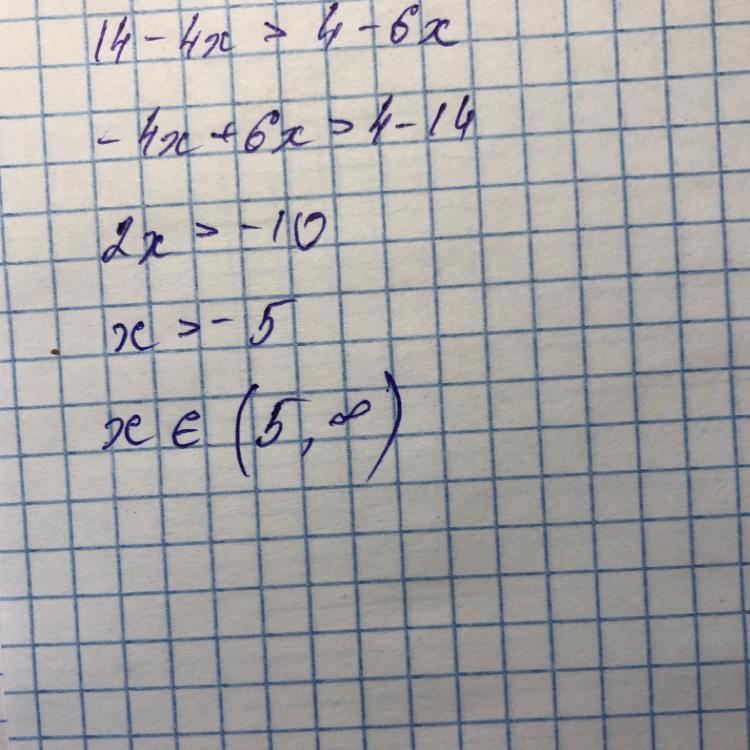 14 - 4x > 4 - 6x
- 4x + 6x > 4 - 14
2x > -10
x > - 5
x ∈ (5, ∞)